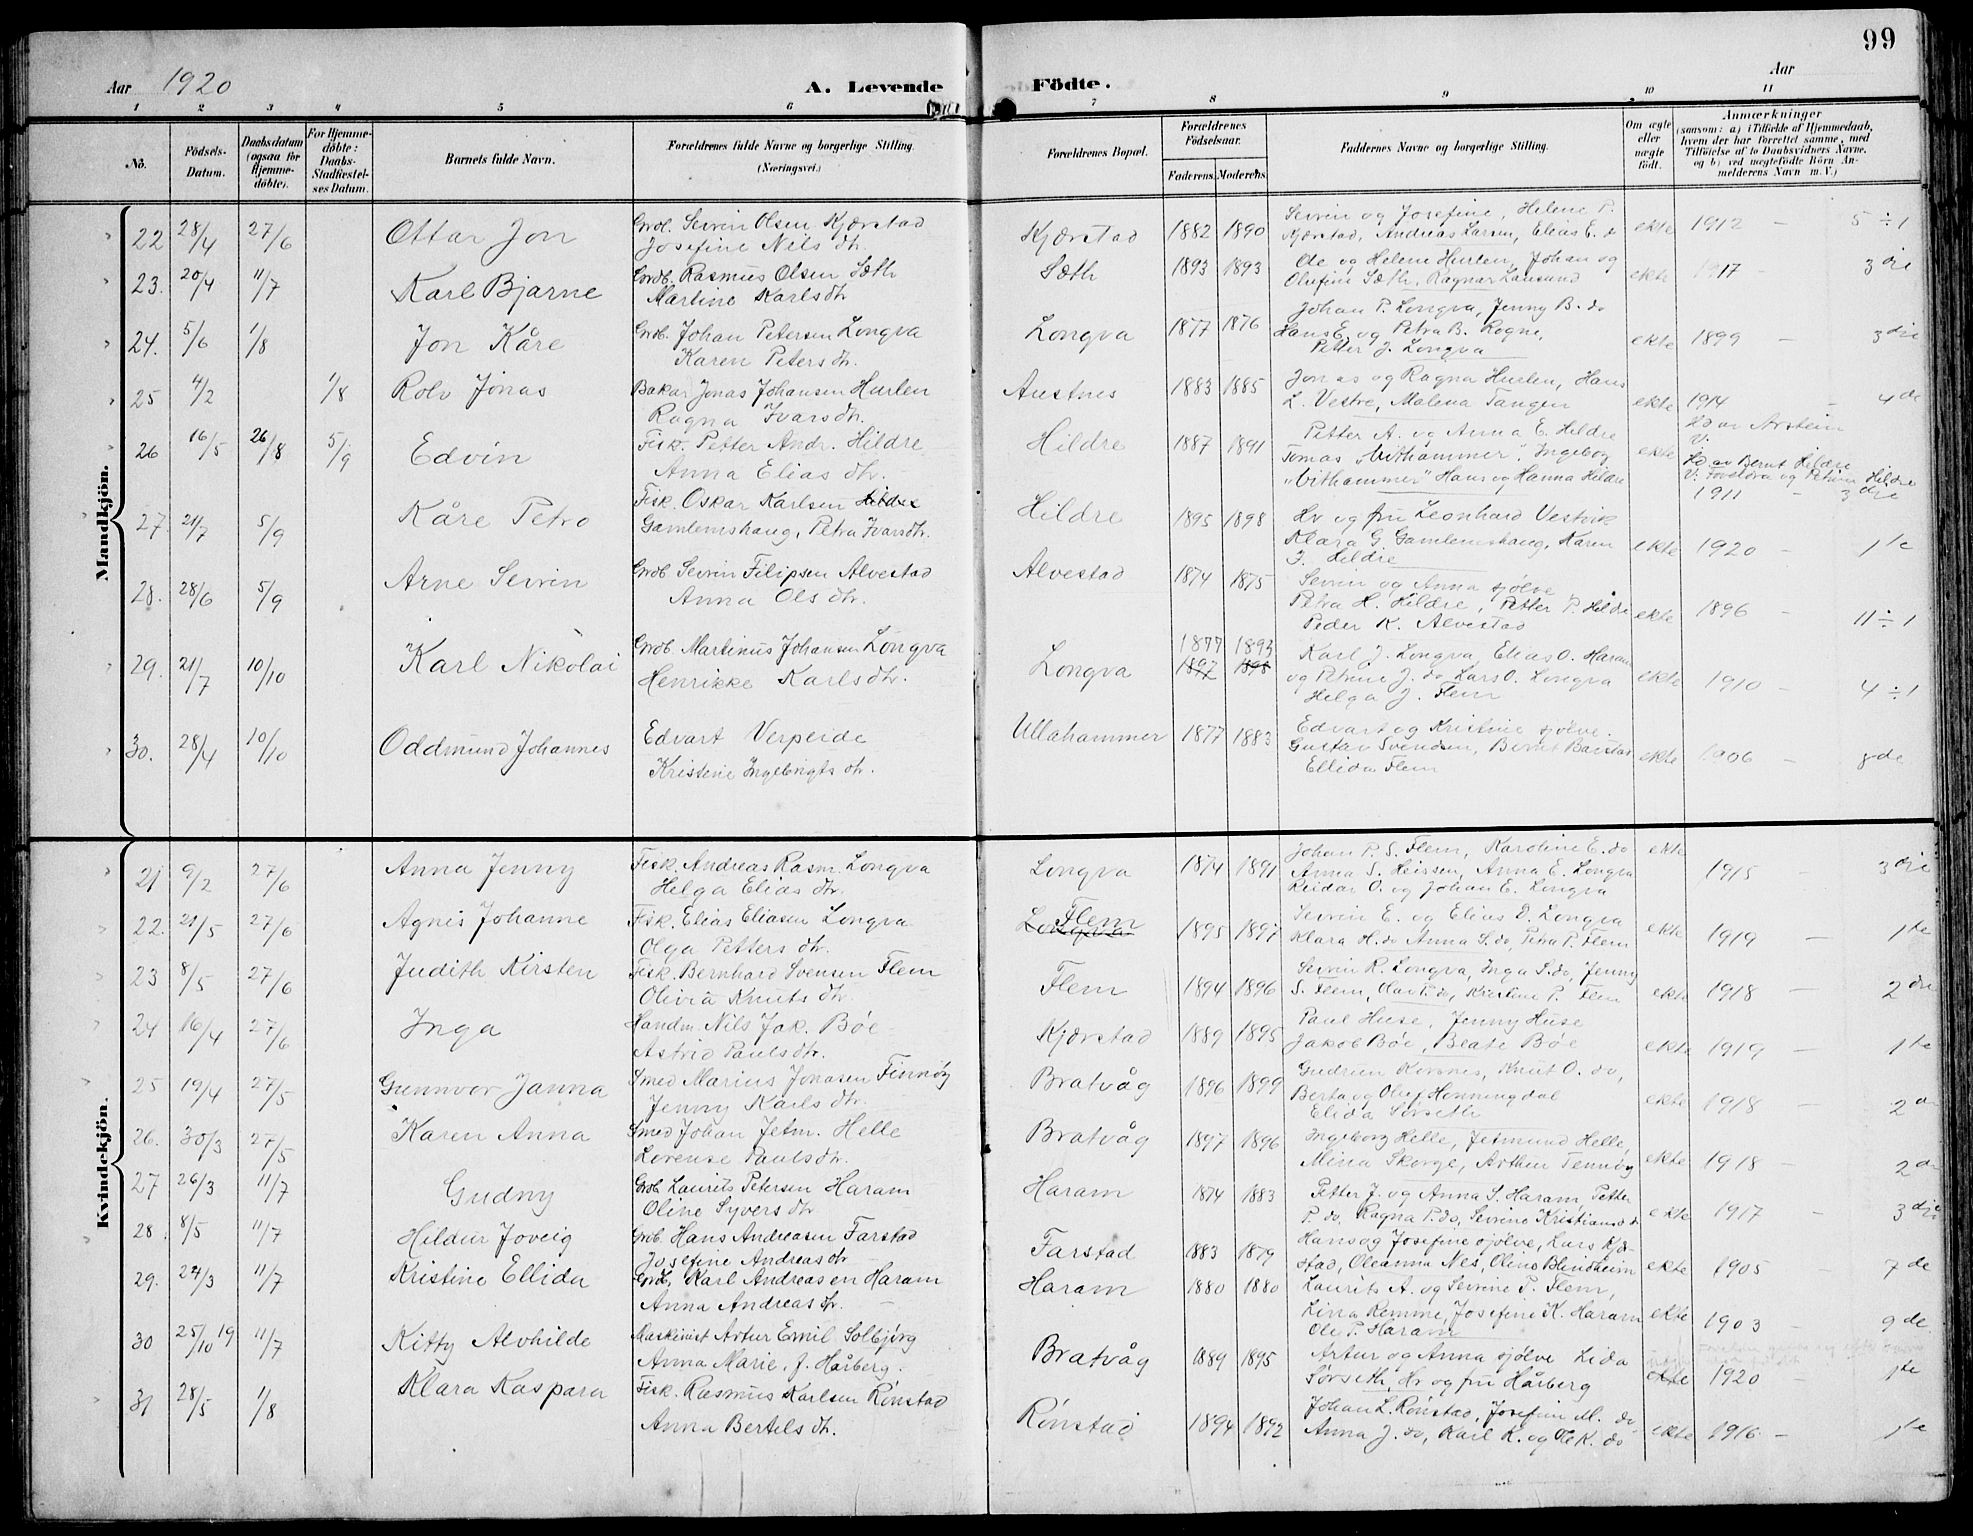 99
Aar 1920 A. Levende Födte. Aar
1 2 3 4 5 6 7 8 9 10 11
No. Födsels-Datum. Daabsdatum (ogsaa for Hjemme-döbte). For Hjemme-döbte: Daabs-Stadfestel-ses Datum. Barnets fulde Navn. Forældrenes fulde Navne og borgerlige Stilling. (Næringsvei.) Forældrenes Bopæl. Forældrenes Födselsaar. Faderens. Moderens. Faddernes Navne og borgerlige Stilling. Om ægte eller uægte födt. Anmærkninger (saasom: a) i Tilfælde af Hjemmedaab, hvem der har forrettet samme, med Tilföielse af to Daabsvidners Navne, og b) ved uægtefödte Börn An-melderens Navn m. V.)
Mandkjön.
22 28/4 27/6 Ottar Jon Grdb. Sevrin Olsen Kjærstad Kjærstad 1882 1890 Sevrin og Josefine, Helene P. ekte 1912 - 5 ÷ 1
Josefine Nils dtr. Kjærstad, Andreas Larsen, Elias E. do
23. 20/4 11/7 Karl Bjarne Grdb. Rasmus Olsen Sæth Sæth 1893 1893 Ole og Helene Hurlen, Johan og ekte 1917 - 3 die
Martine Karlsdtr Olufine Sæth, Ragnar Lausund
24. 5/6 1/8 Jon Kåre Grdb. Johan Petersen Longva Longva 1877 1876 Johan P. Longva, Jenny B. do ekte 1899 - 3 die
Karen Peters dtr. Hans E. og Petra B. Rogne,
Petter J. Longva
25 4/2 1/8 Rolv Jonas Bakar Jonas Johansen Hurlen Austnes 1883 1885 Jonas og Ragna Hurlen, Hans ekte 1914 - 4 de
Ragna Ivarsdtr. L. Vestre, Malena Tangen
26 16/5 26/8 5/9 Edvin Fisk. Petter Andr. Hildre Hildre 1887 1891 Petter A. og Anna E. Hildre ekte
Anna Elias dtr. Tomas "Uthammer", Ingeborg Hd av Bernt Hildre
"Uthammer" Hans og Hanna Hildre 1911 - 3 die
27. 21/7 5/9 Kåre Petro Fisk. Oskar Karlsen Hildre Hildre 1895 1898 Hr og fru Leonhard Vestvik ekte 1920 - 1 te
Gamlemshaug, Petra Ivarsdtr. Klara G Gamlemshaug, Karen
J. Hildre
28. 28/6 5/9 Arne Sevrin Grdb. Sevrin Filipsen Alvestad Alvestad 1874 1875 Sevrin og Anna sjølve ekte 1896 - 11 ÷ 1
Anna Ols dtr. Petra H. Hildre, Petter P. Hildre
Peder K. Alvestad
29. 21/7 10/10 Karl Nikolai Grdb. Martinus Johansen Longva Longva 1877 1893 Karl J. Longva, Elias O. Haram ekte 1910 - 4 ÷ 1
Henrikke Karlsdtr. 1897 1898 og Petrine J. do Lars O. Longva
Helga J. Flem
30. 28/4 10/10 Oddmund Johannes Edvart Verpeide Ullahammer 1877 1883 Edvart og Kristine sjølve. ekte 1906 - 8 de
Kristine Ingebrigts dtr. Gustav Svendsen, Bernt
Ellida Flem
Kvindekjön.
21 9/2 27/6 Anna Jenny Fisk. Andreas Rasm. Longva Longva 1874 1891 Johan P. S. Flem, Karoline E. do ekte 1915 - 3 die
Helga Elias dtr. Anna S. Heissen, Anna E. Longva
Reidar O. og Johan E. Longva
22. 21/5 27/6 Agnes Johanne Fisk. Elias Eliasen Longva Flem 1895 1897 Sevrin E. og Elias D. Longva ekte 1919 - 1 te
Olga Petters dtr. Klara H. do Anna S. do, Petra P. Flem
23 8/5 27/6 Judith Kirsten Fisk. Bernhard Svensen Flem Flem 1894 1896 Sevrin R. Longva, Inga S. do, Jenny ekte 1918 - 2 dre
Olivia Knuts dtr. S. Flem, Olav P. do, Kristine P. Flem
24 16/4 27/6 Inga Handm. Nils Jak. Bøe Kjærstad 1889 1895 Paul Huse, Jenny Huse ekte 1919 - 1 te
Astrid Paulsdtr. Jakob Bøe, Beate Bøe
25 19/4 27/5 Gunnvor Janna Smed Marius Jonasen Finnøy Bratvåg 1896 1899 Gudrun Korsnes, Knut O. do, ekte 1918 - 2 dre
Jenny Karls dtr. Berta og Oluf Henningdal
Elida Sørseth
26. 30/3 27/5 Karen Anna Smed Johan Jetm. Helle Bratvåg 1897 1896 Ingeborg Helle, Jetmund Helle, ekte 1918 - 2 dre
Lorense Paulsdtr. Mina Skorge, Arthur Tennøy
27 26/3 11/7 Gudny Grdb. Laurits Petersen Haram Haram 1874 1883 Petter J. og Anna S. Haram, Petter ekte 1917 - 3 die
Oline Syvers dtr P. do, Ragna P. do, Sevrine Kristiansd.
28. 8/5 11/7 Hildur Joveig Grdb. Hans Andreasen Farstad Farstad 1883 1879 Hans og Josefine sjølve, Lars Kjær- ekte 1905 - 7 de
Josefine Andreasdtr stad, Oleanna Nes, Oline Blindheim
29. 24/3 11/7 Kristine Ellida Grdb. Karl Andreasen Haram Haram 1880 1880 Laurits A. og Sevrine P. Flem, ekte 1903 - 9 de
Anna Andreas dtr. Lina Remme, Josefine K. Haram
Ole P. Haram
30 25/10 19 11/7 Kitty Alvhilde Maskinist Artur Emil Solbjørg Bratvåg 1889 1895 Artur og Anna sjølve Lida ekte 1920 - 1 te
Anna Marie J. Hårberg. Sørseth, Hr og fru Hårberg
31 28/5 1/8 Klara Kaspara Fisk. Rasmus Karlsen Rønstad Rønstad 1894 1892 Johan L. Rønstad, Josefine M. do ekte 1916 - 1 te
Anna Bertels dtr. Anna J. do, Karl K. og Ole K. do